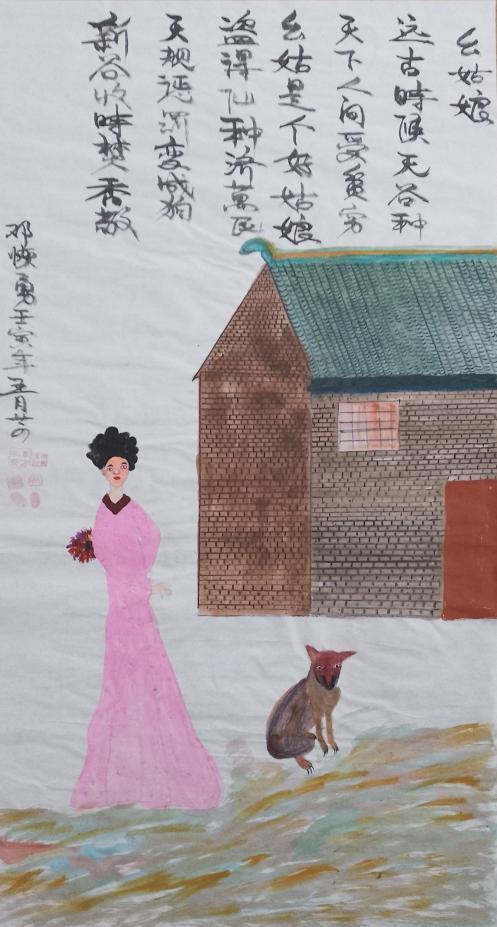 幺姑娘
远古時候无谷种
天下人间受贫穷
幺姑是个好姑娘
盗得仙种济萬民
天规惩罚变成狗
新谷收時焚香敬
邓恢勇壬寅年五月廿